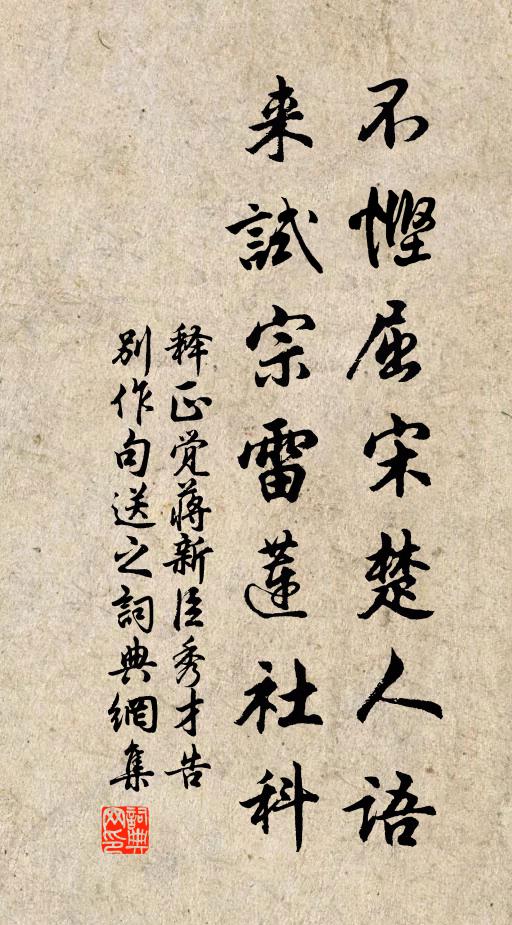 不悭屈宋楚人语
来試宗雷蓮社科
释正觉蔣新臣秀才告
别作句送之詞典網集
詞典网印